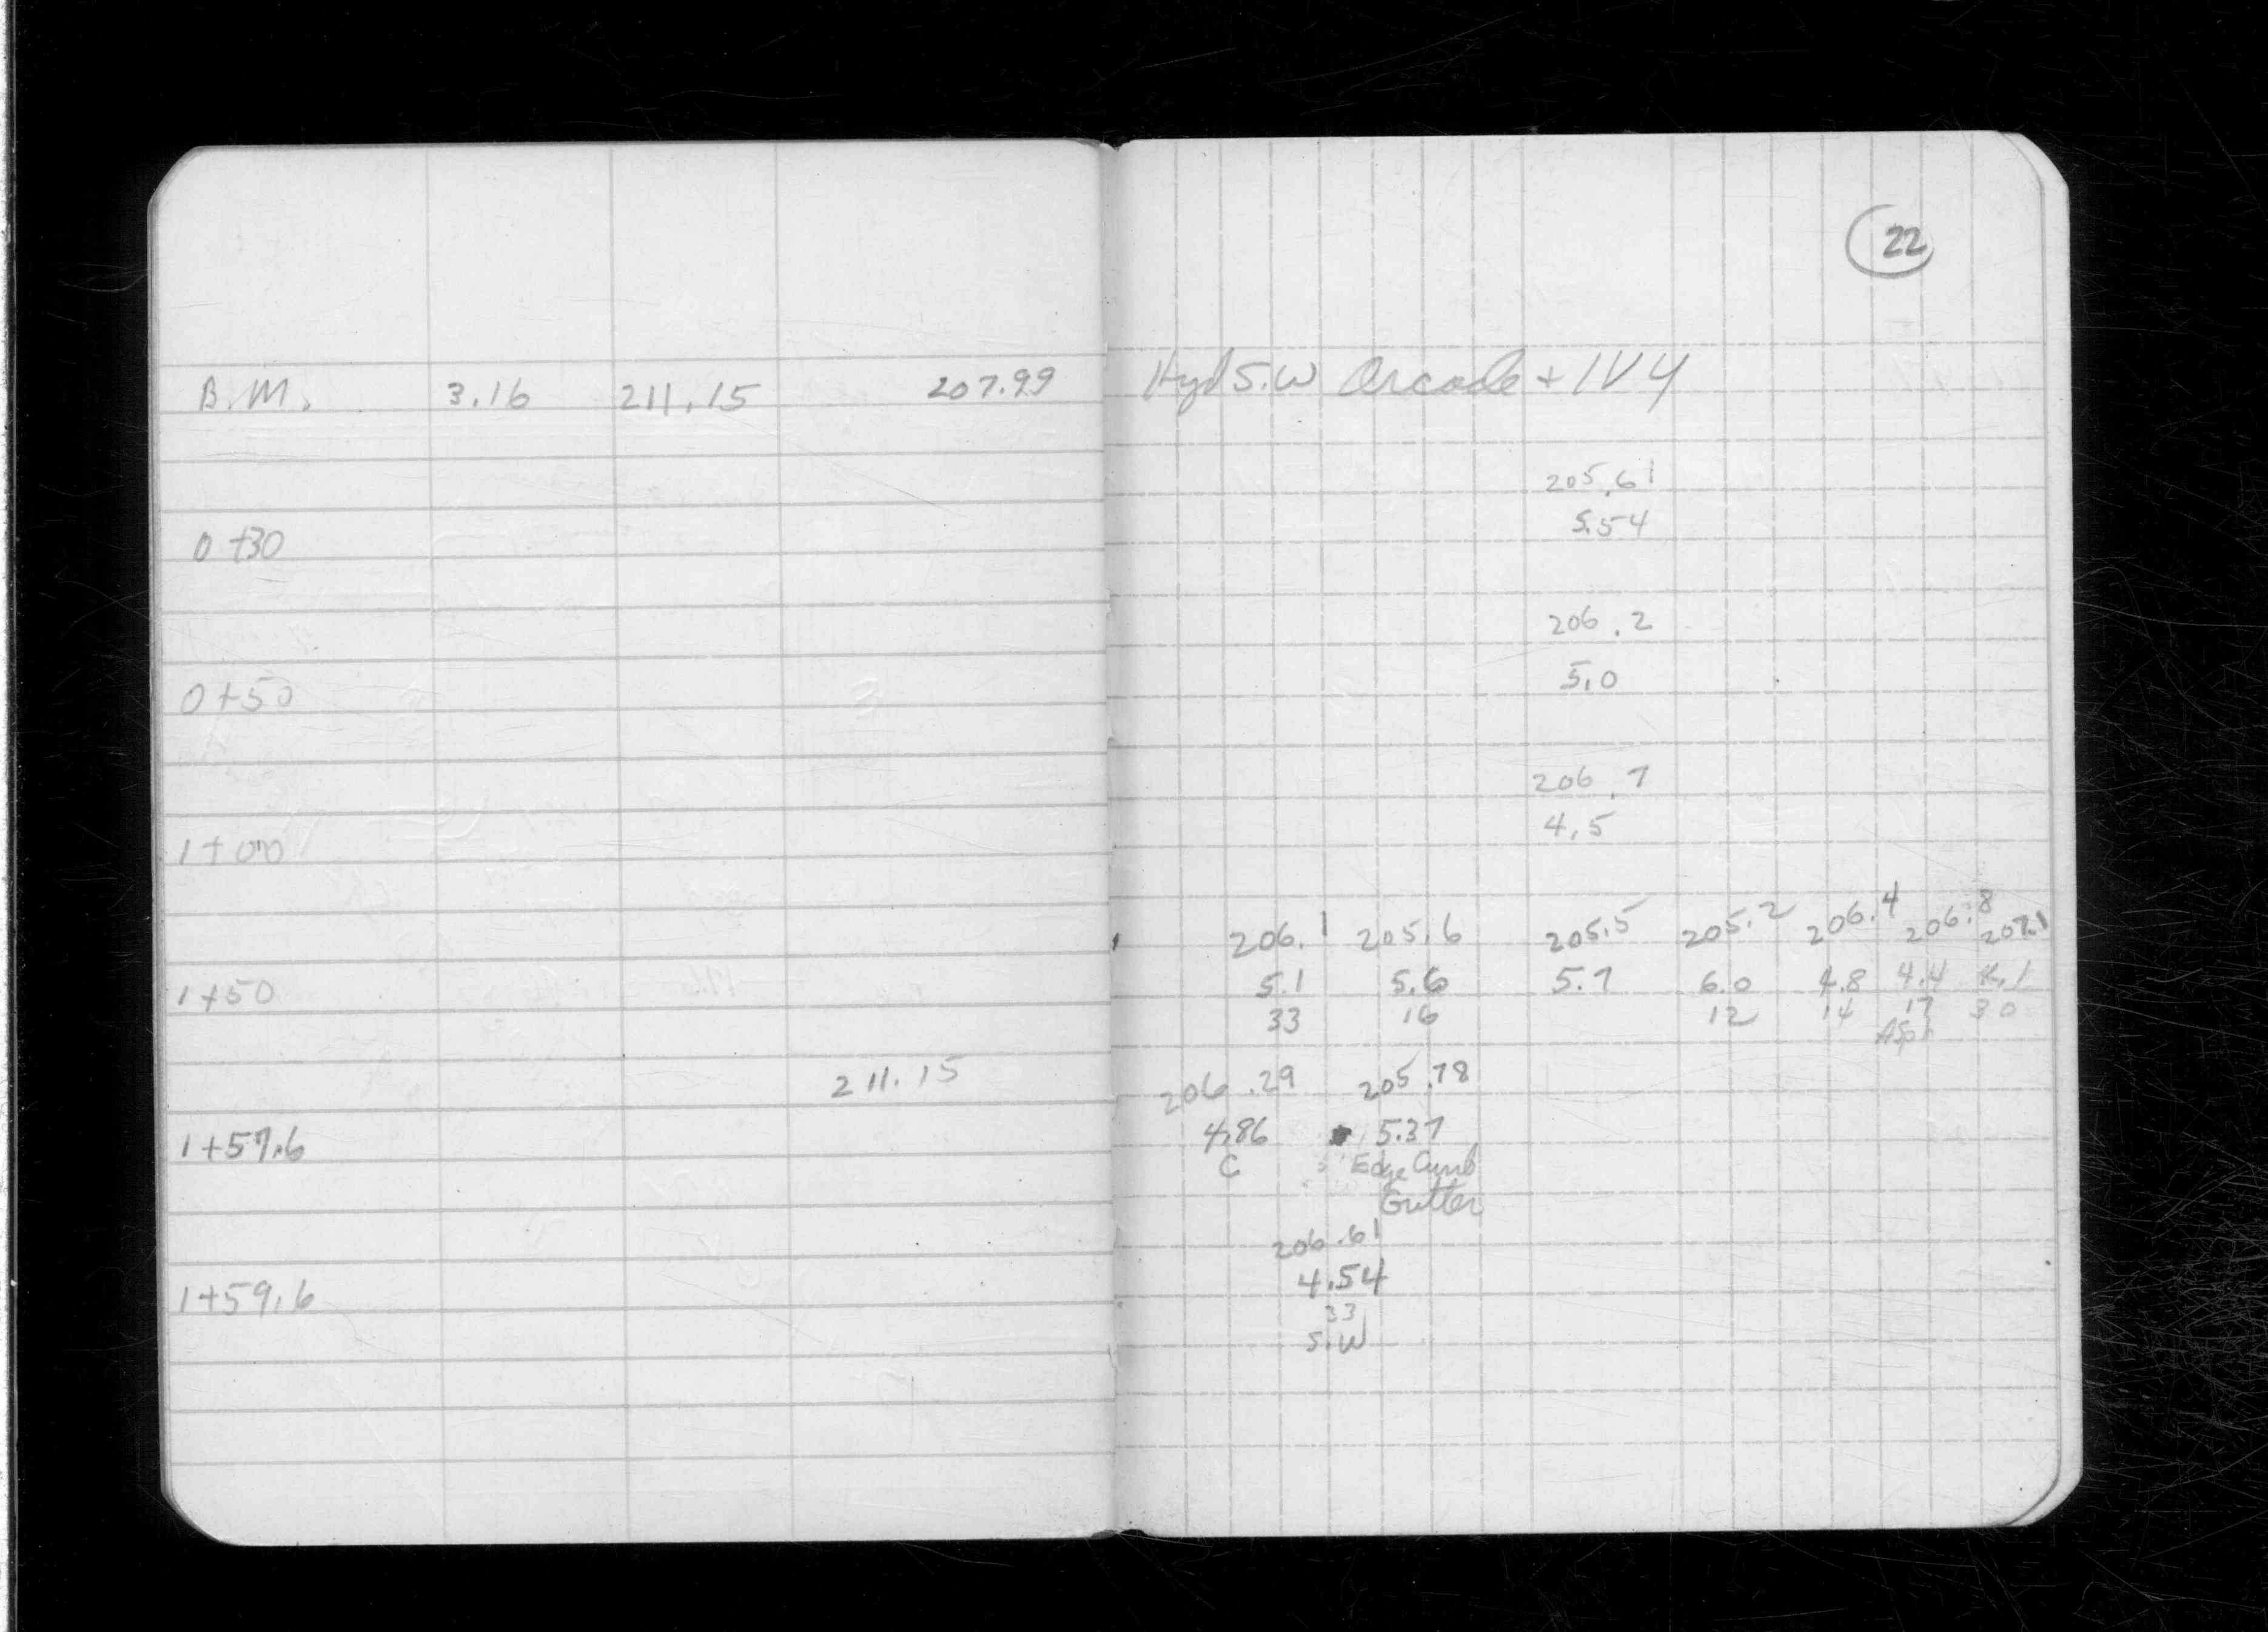 22
B.M. 3.16 211.15 207.99 Hyd S.W Arcade + IVY
205.61
0+30 5.54
206.2
0+50 5.0
206.7
1+00 4.5
206.1 205.6 205.5 205.2 206.4 206.8 207.1
1+50 5.1 5.6 5.7 6.0 4.8 4.4 4.1
33 16 12 14 17 30
Asph
211.15 206.29 205.78
1+57.6 4.86 5.37
C Edge Curb
Gutter
206.61
1+59.6 4.54
33
S.W